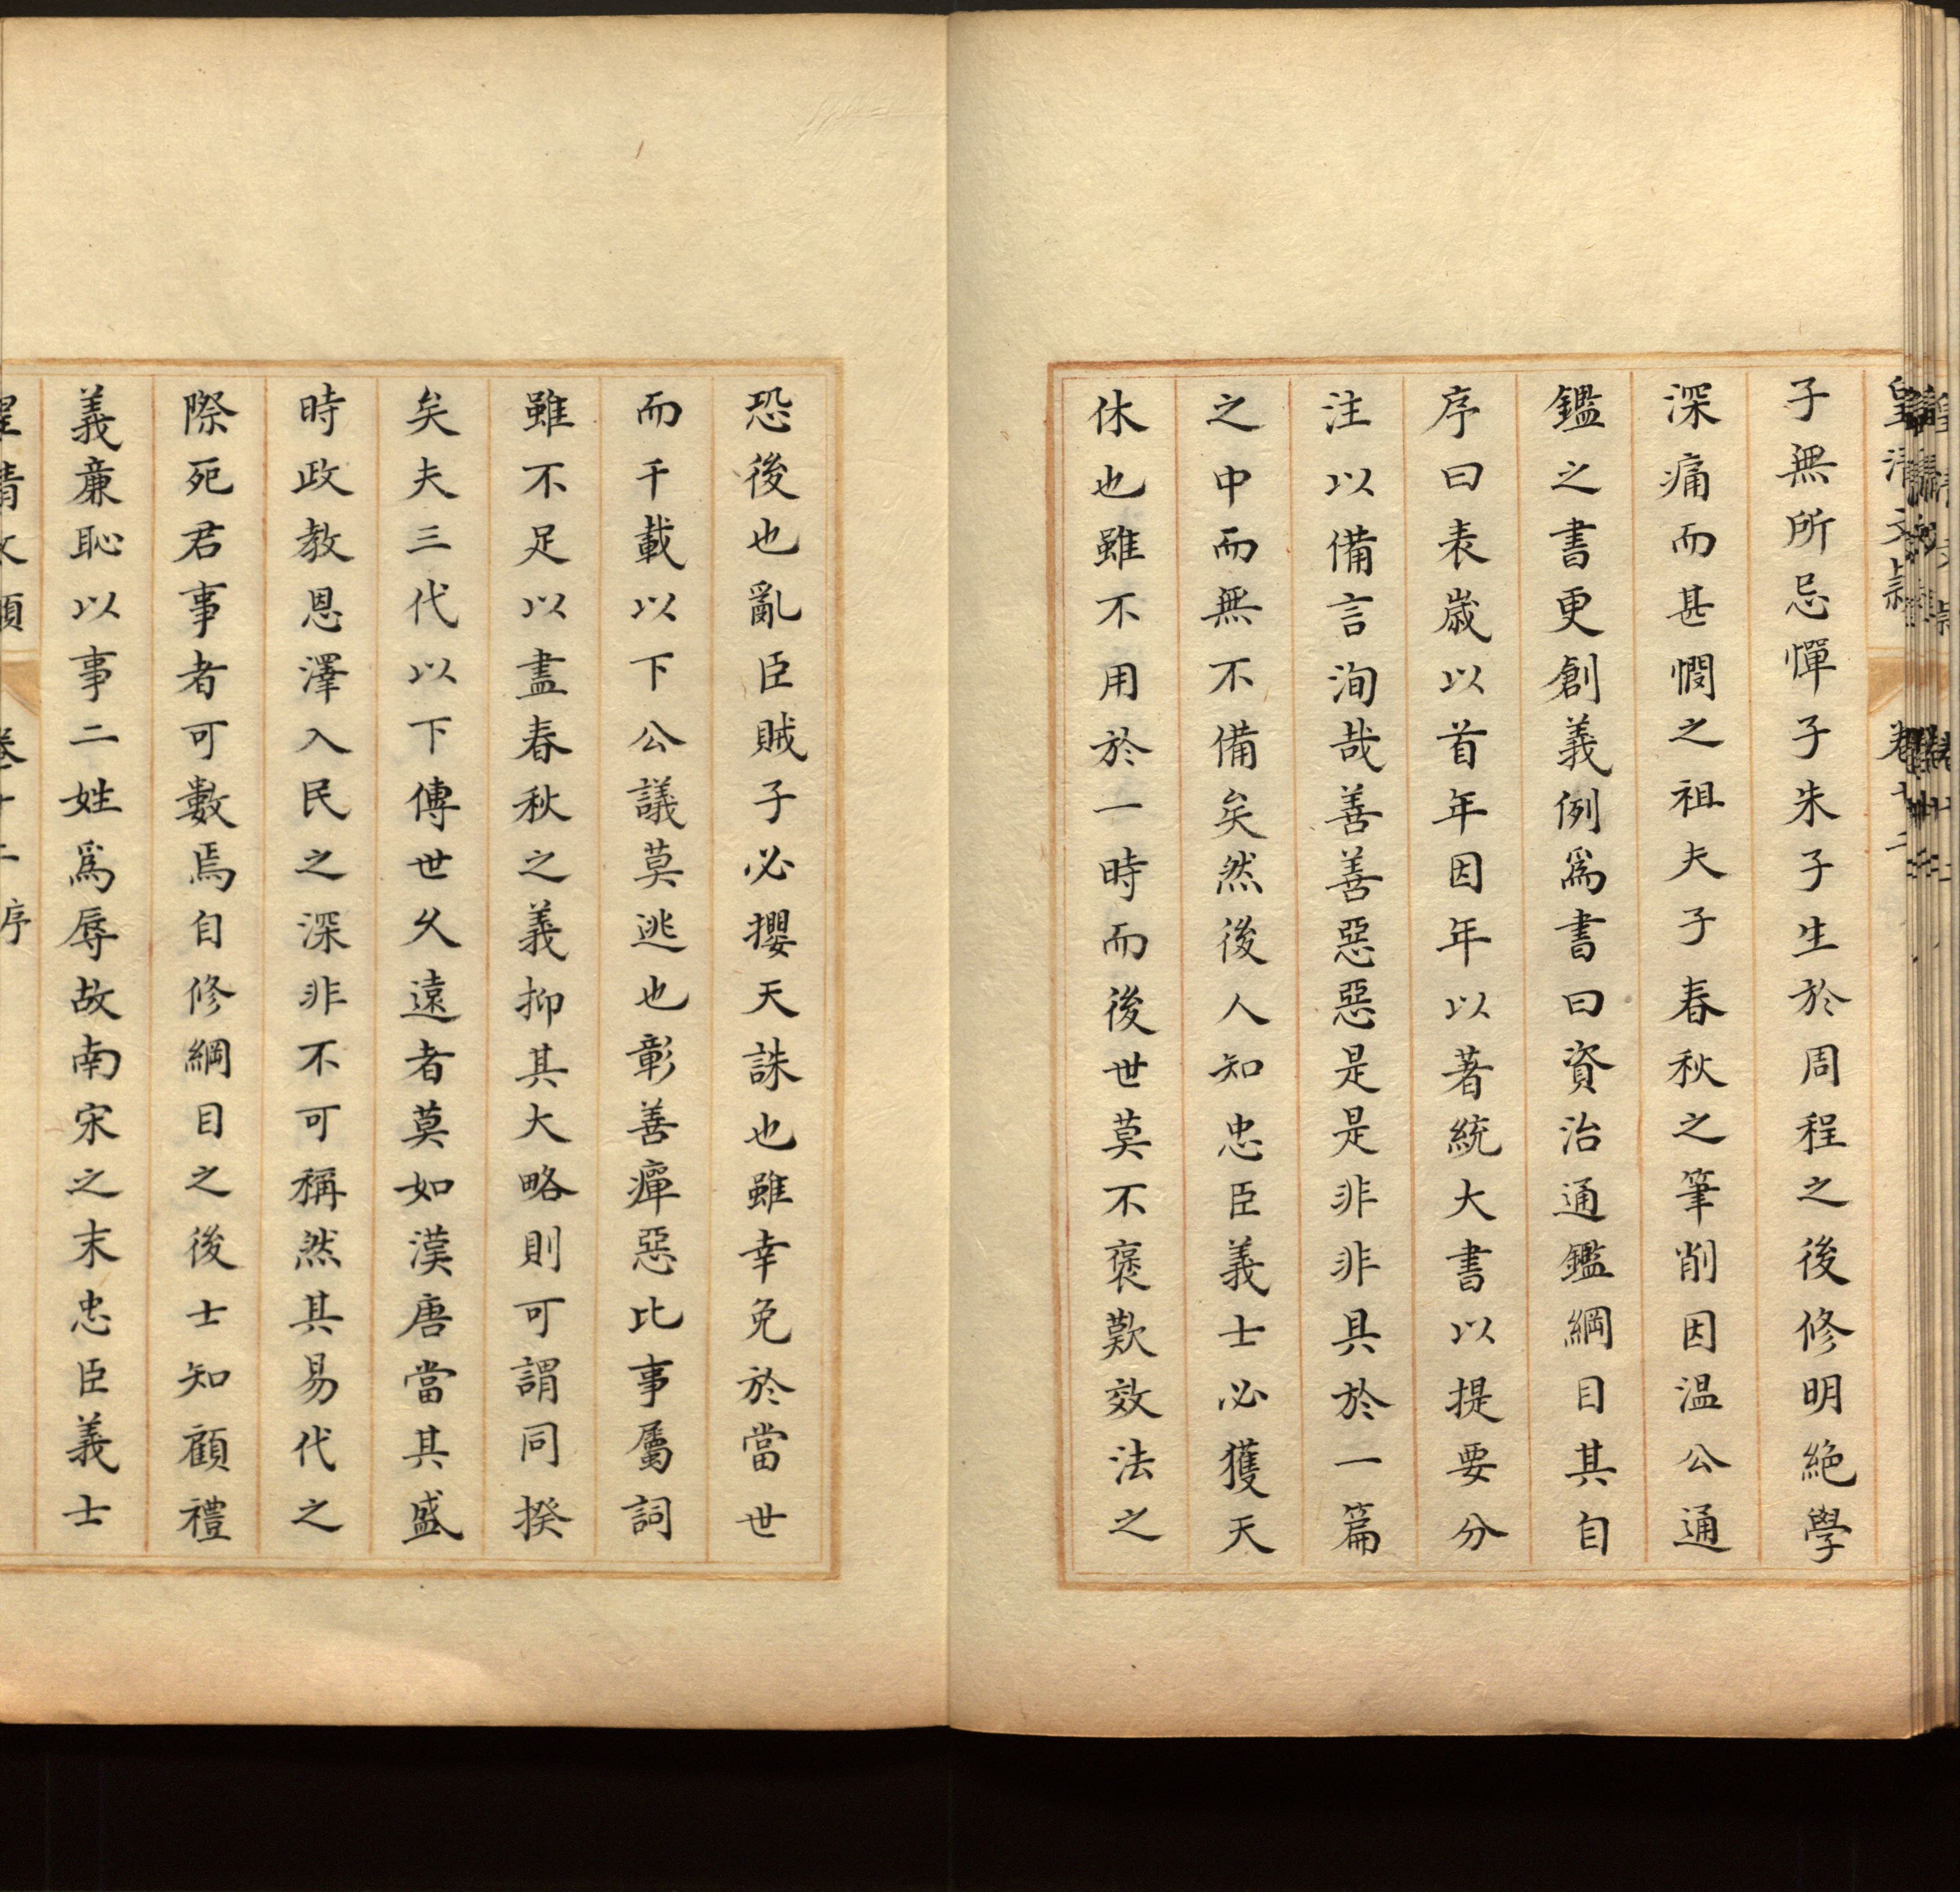 皇清文穎 卷十二
子無所忌憚子朱子生於周程之後修明絶學
深痛而甚憫之祖夫子春秋之筆削因温公通
鑑之書更創義例爲書曰資治通鑑綱目其自
序曰表歲以首年因年以著統大書以提要分
注以備言洵哉善善惡惡是是非非具於一篇
之中而無不備矣然後人知忠臣義士必獲天
休也雖不用於一時而後世莫不褒歎效法之
恐後也亂臣賊子必攖天誅也雖幸免於當世
而千載以下公議莫逃也彰善癉惡比事屬詞
雖不足以盡春秋之義抑其大略則可謂同揆
矣夫三代以下傳世久遠者莫如漢唐當其盛
時政教恩澤入民之深非不可稱然其易代之
際死君事者可數焉自修綱目之後士知顧禮
義廉恥以事二姓爲辱故南宋之末忠臣義士
皇清文穎 卷十二 序